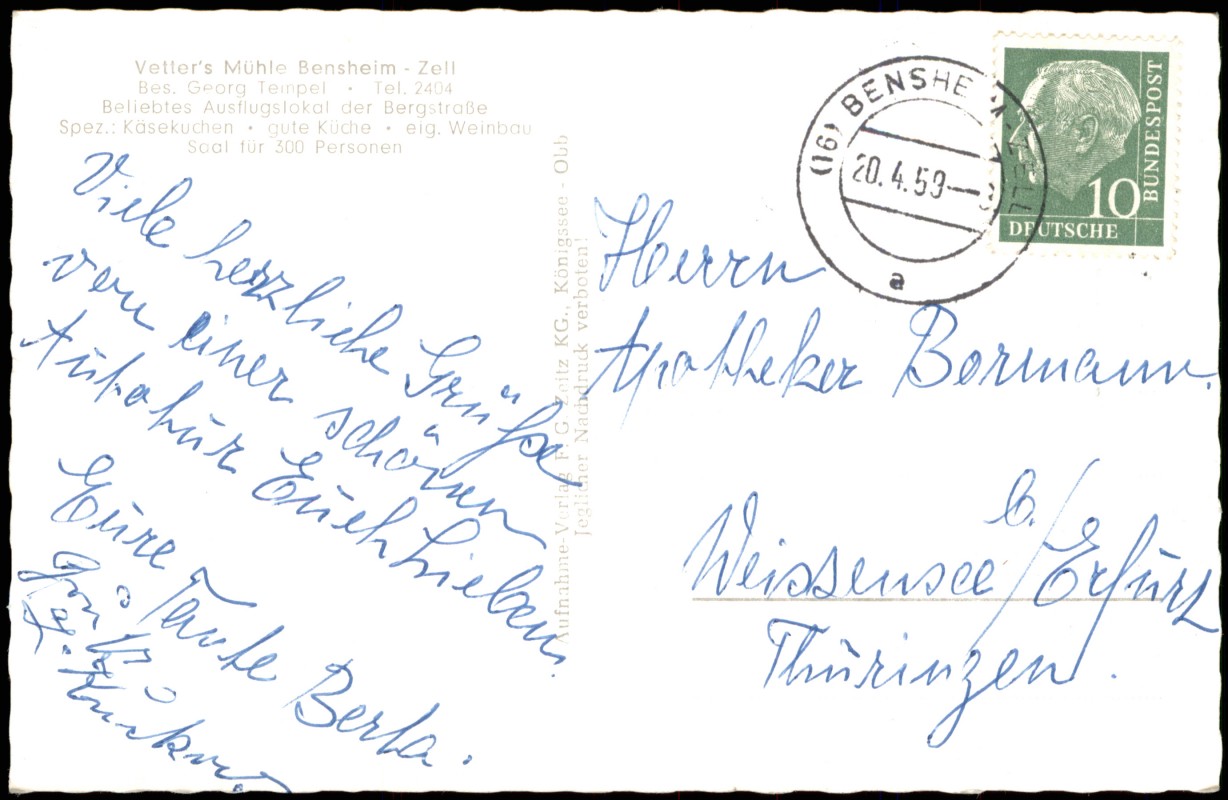 Vetter's Mühle Bensheim - Zell
Bes. Georg Tempel · Tel. 2404
Beliebtes Ausflugslokal der Bergstraße
Spez.: Käsekuchen · gute Küche · eig. Weinbau
Saal für 300 Personen
Viele herzliche Grüße
von einer schönen
Autotur Euch Lieben.
Eure Tante Berta.
Aufnahme-Verlag F. G. Zeitz KG., Königssee - Obb
Jeglicher Nachdruck verboten!
(16) BENSHEIM-ZELL
20.4.59
a
BUNDESPOST
10
DEUTSCHE
Herrn
Apotheker Bormann.
b./
Weissensee/Erfurt
Thüringen.